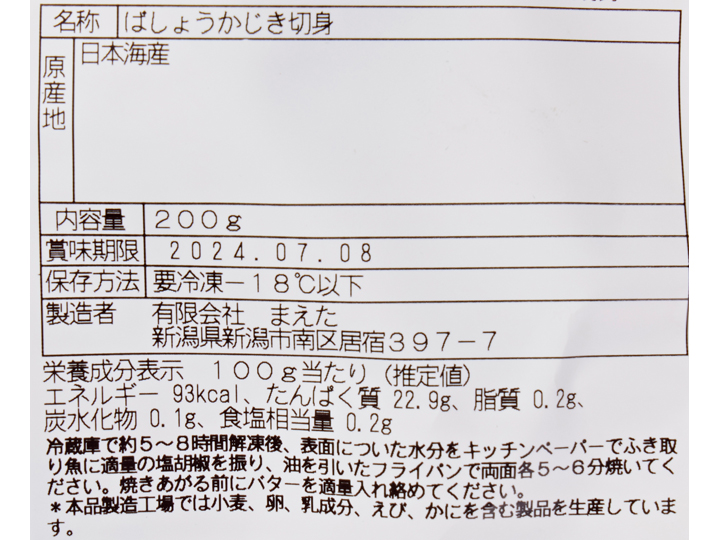 名称 ばしょうかじき切身
原産地 日本海産
内容量 200g
賞味期限 2024.07.08
保存方法 要冷凍-18℃以下
製造者 有限会社 まえた
新潟県新潟市南区居宿397-7
栄養成分表示 100g当たり(推定値)
エネルギー 93kcal、たんぱく質 22.9g、脂質 0.2g、
炭水化物 0.1g、食塩相当量 0.2g
冷蔵庫で約5~8時間解凍後、表面についた水分をキッチンペーパーでふき取
り魚に適量の塩胡椒を振り、油を引いたフライパンで両面各5~6分焼いてく
ださい。焼きあがる前にバターを適量入れ絡めてください。
*本品製造工場では小麦、卵、乳成分、えび、かにを含む製品を生産していま
す。